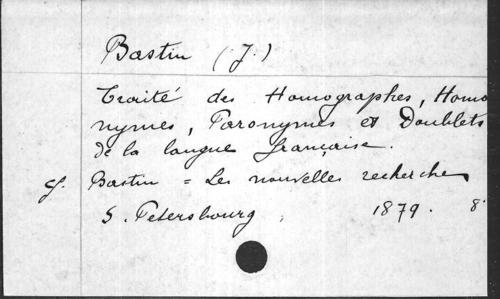 Bastin (J.)
Traité des Homographes, Homo
nymes, Paronymes et Doublets
de la langue française.
cf. Bastin = Les nouvelles recherches
S. Petersbourg, 1879. 8°